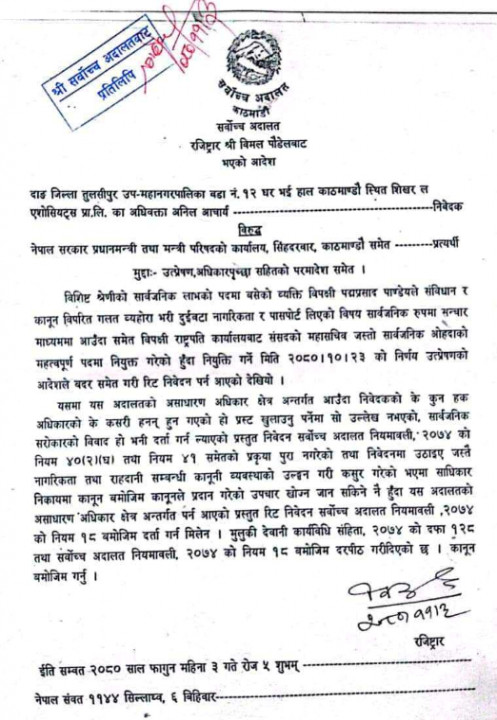 श्री सर्वोच्च अदालतबाट
प्रतिलिपि
सर्वोच्च अदालत
काठमाडौं
सर्वोच्च अदालत
रजिष्ट्रार श्री विमल पौडेलबाट
भएको आदेश
दाङ जिल्ला तुलसीपुर उप-महानगरपालिका वडा नं. १२ घर भई हाल काठमाण्डौ स्थित शिखर ल
एशोसियट्स प्रा.लि. का अधिवक्ता अनिल आचार्य ----------निवेदक
विरुद्ध
नेपाल सरकार प्रधानमन्त्री तथा मन्त्री परिषदको कार्यालय, सिंहदरवार, काठमाण्डौ समेत ---------प्रत्यर्थी
मुद्दाः- उत्प्रेषण,अधिकारपृच्छा सहितको परमादेश समेत ।
विशिष्ट श्रेणीको सार्वजनिक लाभको पदमा बसेको व्यक्ति विपक्षी पद्मप्रसाद पाण्डेयले संविधान र
कानून विपरित गलत व्यहोरा भरी दुईवटा नागरिकता र पासपोर्ट लिएको विषय सार्वजनिक रुपमा सन्चार
माध्यममा आउँदा समेत विपक्षी राष्ट्रपति कार्यालयबाट संसदको महासचिव जस्तो सार्वजनिक ओहदाको
महत्वपूर्ण पदमा नियुक्त गरेको हुँदा नियुक्ति गर्ने मिति २०८०।१०।२३ को निर्णय उत्प्रेषणको
आदेशले बदर समेत गरी रिट निवेदन पर्न आएको देखियो ।
यसमा यस अदालतको असाधारण अधिकार क्षेत्र अन्तर्गत आउँदा निवेदकको के कुन हक
अधिकारको के कसरी हनन् हुन गएको हो प्रस्ट खुलाउनु पर्नेमा सो उल्लेख नभएको, सार्वजनिक
सरोकारको विवाद हो भनी दर्ता गर्न ल्याएको प्रस्तुत निवेदन सर्वोच्च अदालत नियमावली, २०७४ को
नियम ४०(२)(घ) तथा नियम ४१ समेतको प्रकृया पुरा नगरेको तथा निवेदनमा उठाइए जस्तै
नागरिकता तथा राहदानी सम्बन्धी कानूनी व्यवस्थाको उल्लङ्घन गरी कसुर गरेको भएमा साधिकार
निकायमा कानून बमोजिम कानूनले प्रदान गरेको उपचार खोज्न जान सकिने नै हुँदा यस अदालतको
असाधारण अधिकार क्षेत्र अन्तर्गत पर्न आएको प्रस्तुत रिट निवेदन सर्वोच्च अदालत नियमावली ,२०७४
को नियम १८ बमोजिम दर्ता गर्न मिलेन । मुलुकी देवानी कार्यविधि संहिता, २०७४ को दफा १२८
तथा सर्वोच्च अदालत नियमावली, २०७४ को नियम १८ बमोजिम दरपीठ गरीदिएको छ । कानून
बमोजिम गर्नु ।
रजिष्ट्रार
ईति सम्वत २०८० साल फागुन महिना ३ गते रोज ५ शुभम् ----------
नेपाल संवत ११४४ सिल्लाथ्व, ६ बिहिवार----------